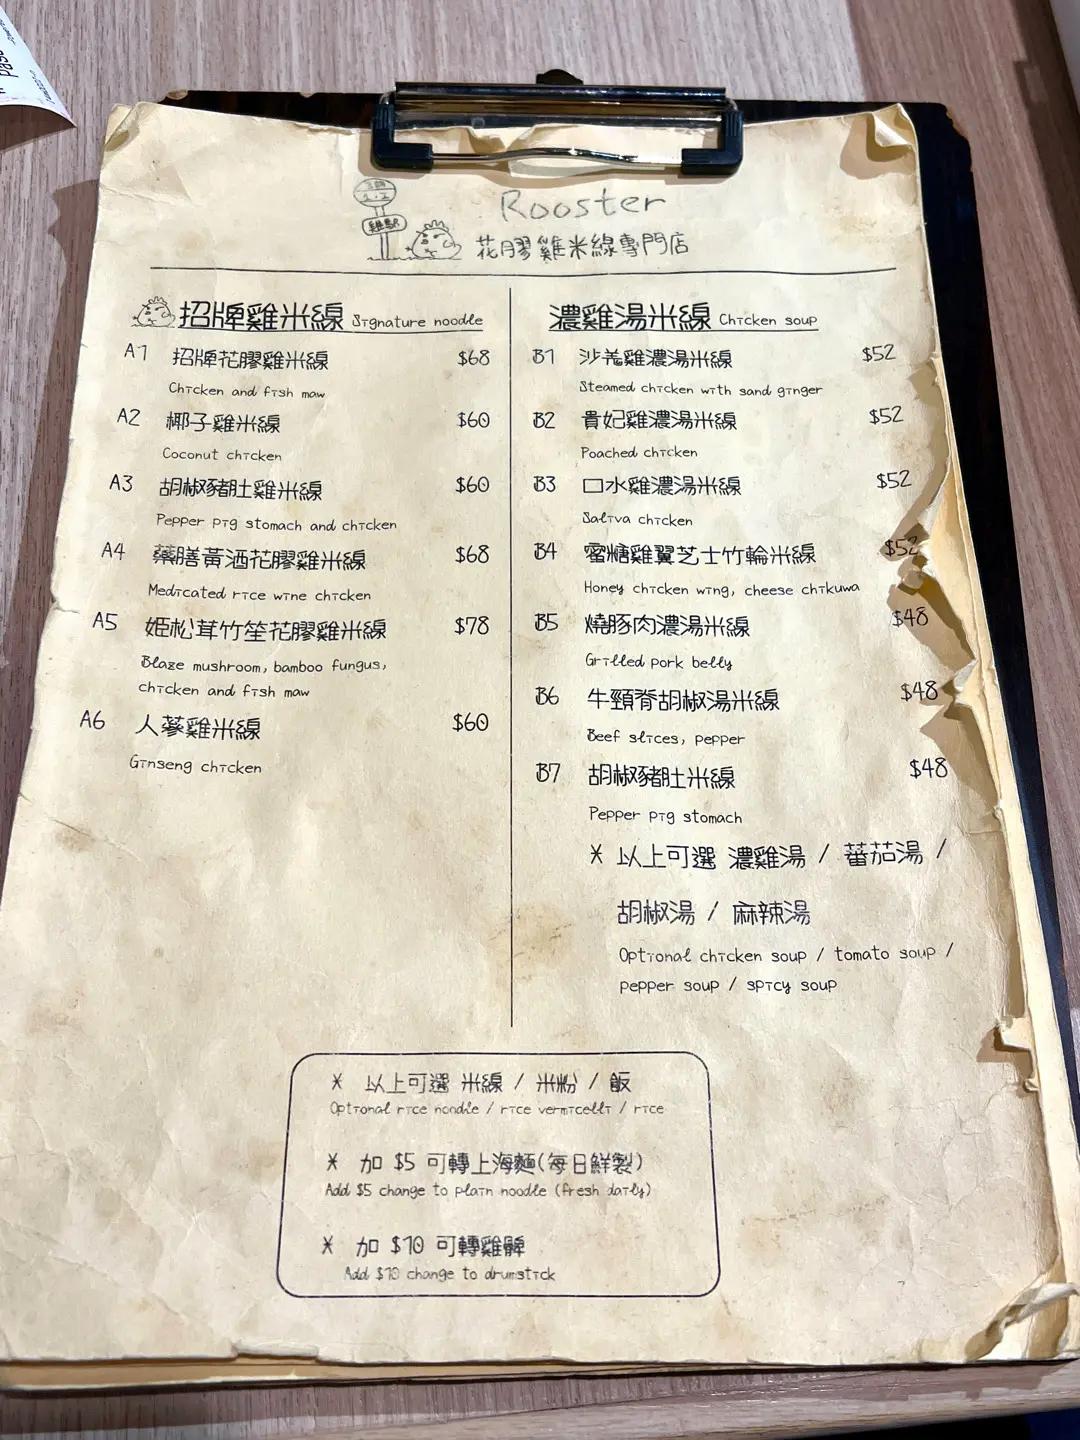 Rooster
雞駅
花膠雞米線專門店
招牌雞米線 Signature noodle
A1 招牌花膠雞米線 $68
Chicken and fish maw
A2 椰子雞米線 $60
Coconut chicken
A3 胡椒豬肚雞米線 $60
Pepper pig stomach and chicken
A4 藥膳黃酒花膠雞米線 $68
Medicated rice wine chicken
A5 姫松茸竹笙花膠雞米線 $78
Blaze mushroom, bamboo fungus,
chicken and fish maw
A6 人蔘雞米線 $60
Ginseng chicken
濃雞湯米線 Chicken soup
B1 沙羌雞濃湯米線 $52
Steamed chicken with sand ginger
B2 貴妃雞濃湯米線 $52
Poached chicken
B3 口水雞濃湯米線 $52
Saliva chicken
B4 蜜糖雞翼芝士竹輪米線 $52
Honey chicken wing, cheese chikuwa
B5 燒豚肉濃湯米線 $48
Grilled pork belly
B6 牛頸脊胡椒湯米線 $48
Beef slices, pepper
B7 胡椒豬肚米線 $48
Pepper pig stomach
* 以上可選 濃雞湯 / 蕃茄湯 /
胡椒湯 / 麻辣湯
Optional chicken soup / tomato soup /
pepper soup / spicy soup
* 以上可選 米線 / 米粉 / 飯
Optional rice noodle / rice vermicelli / rice
* 加 $5 可轉上海麵(每日鮮製)
Add $5 change to plain noodle (fresh daily)
* 加 $10 可轉雞髀
Add $10 change to drumstick